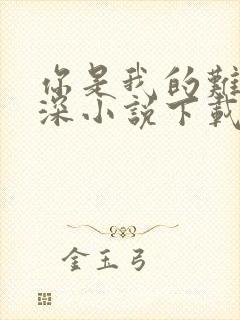 你是我的難
深小說下載
金玉弓